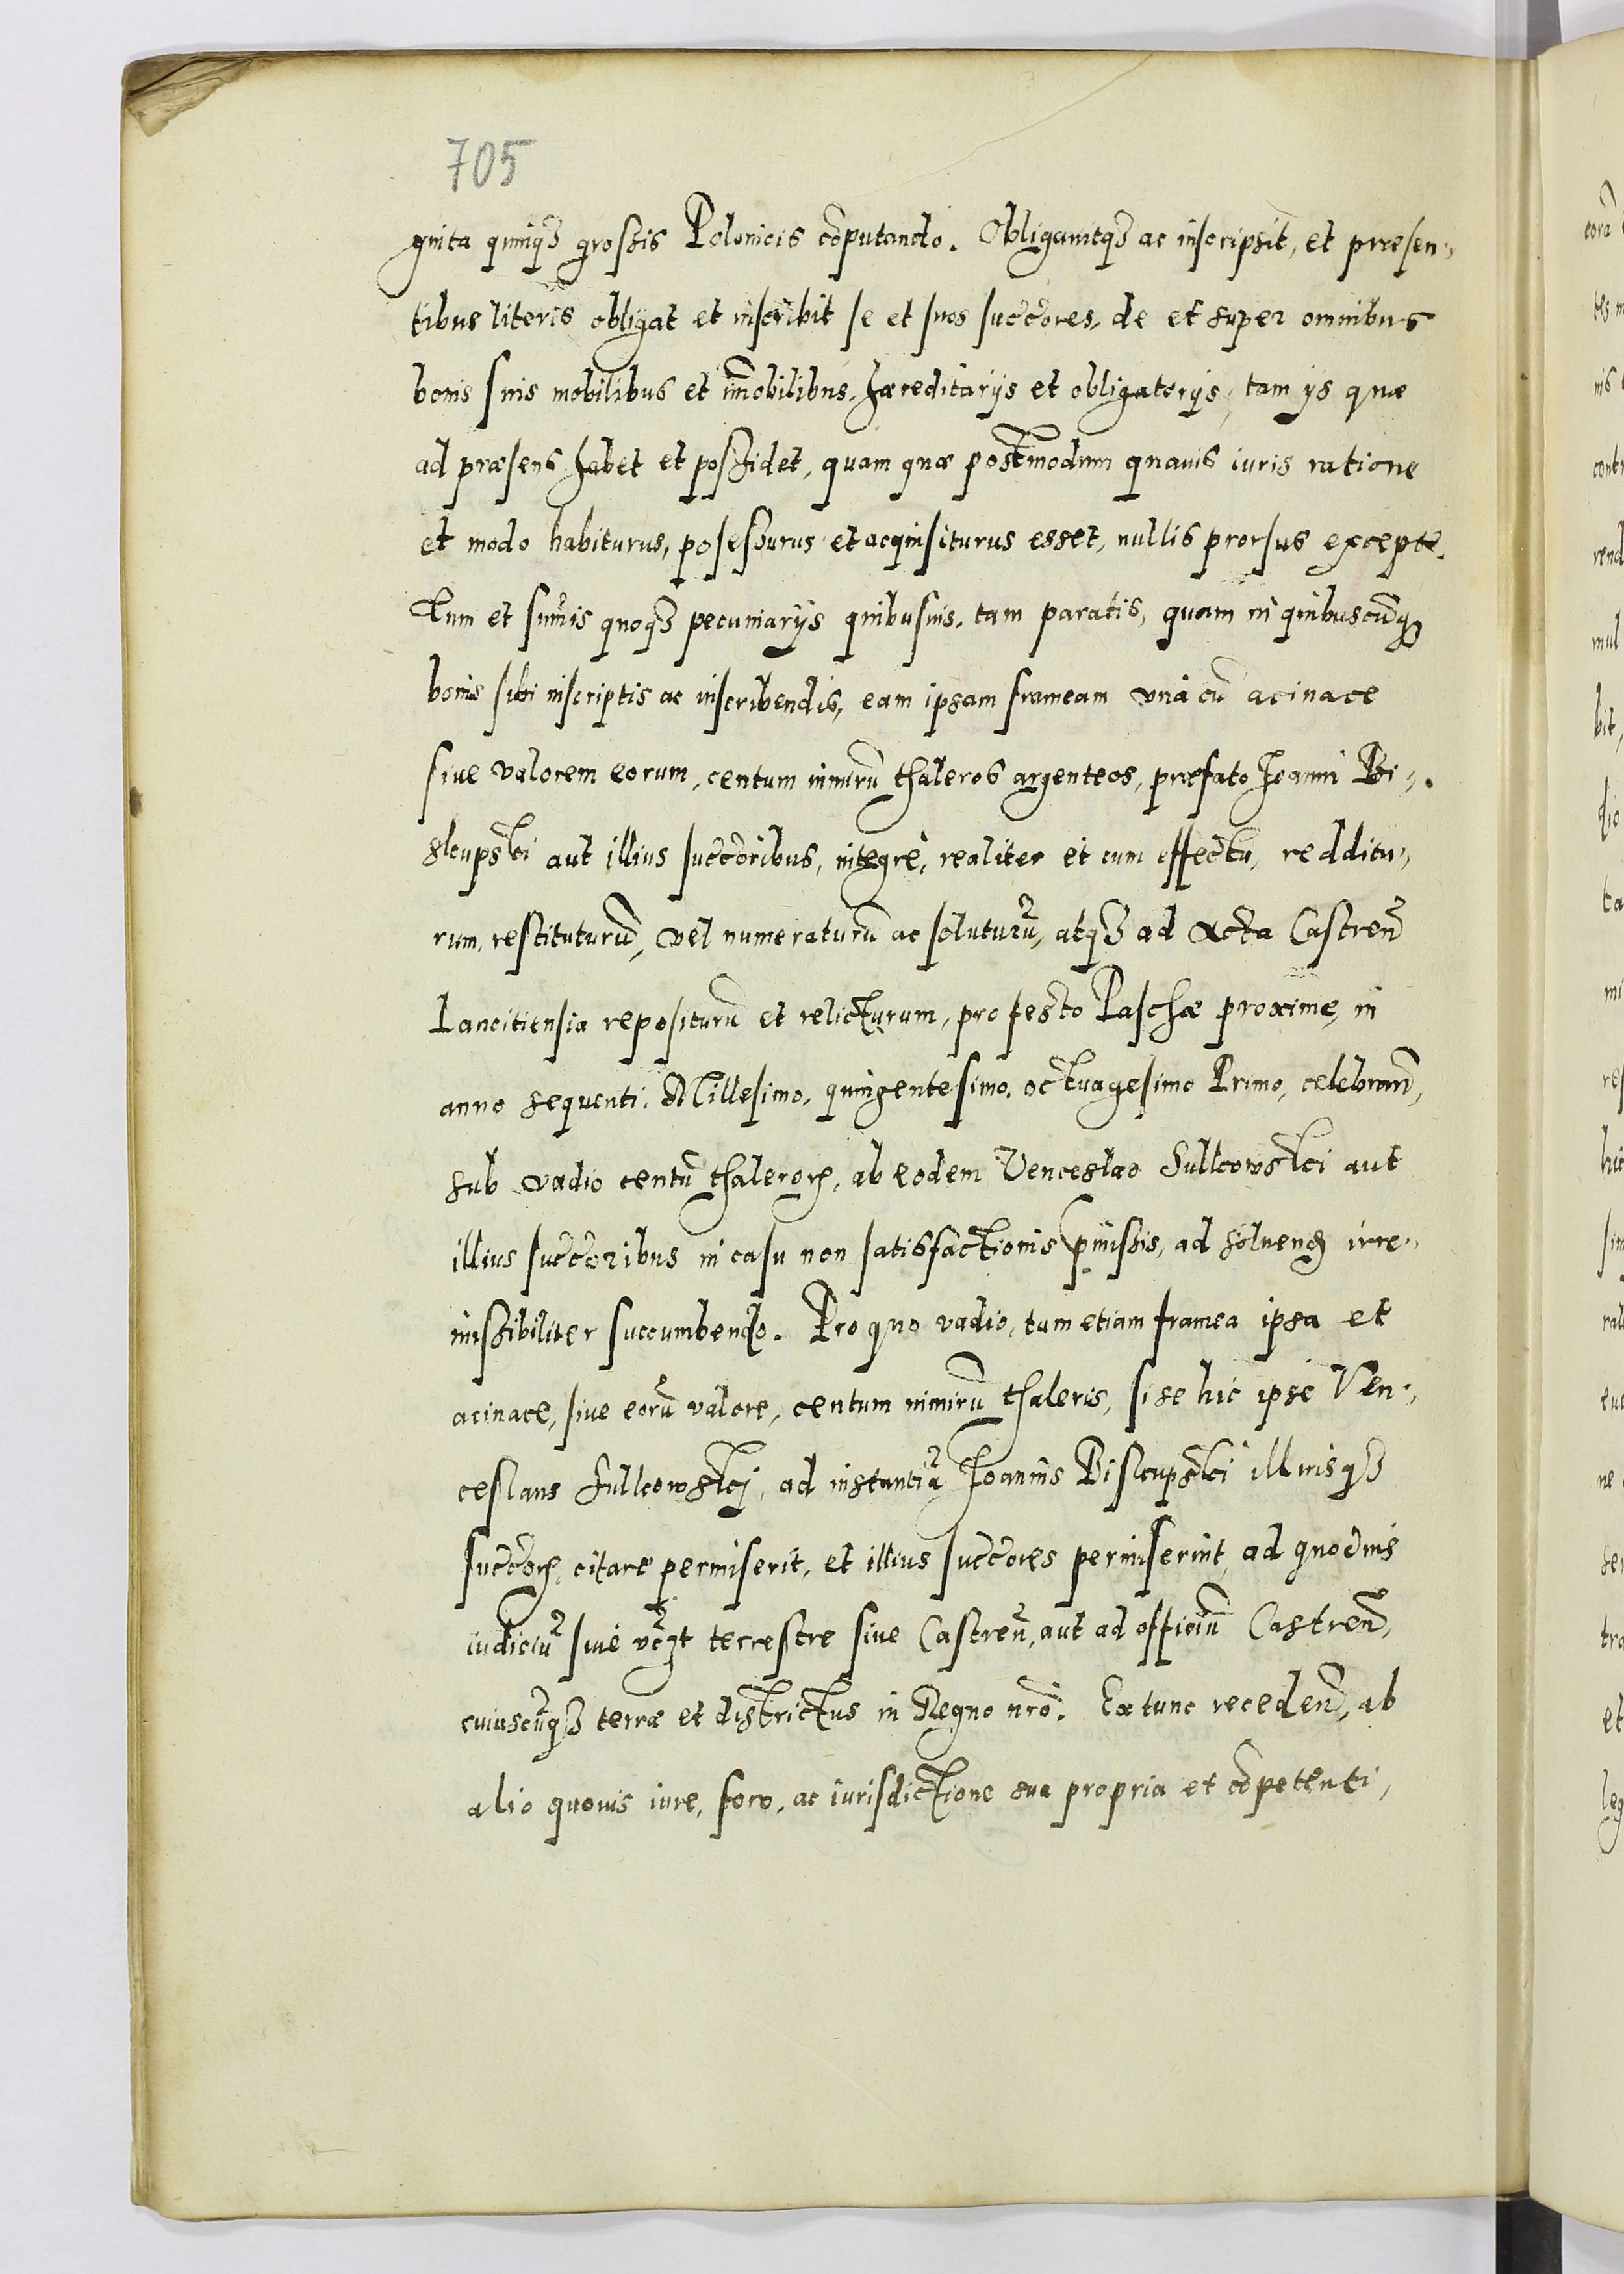 705
ginta quinqȝ grossis Polonicis cōputando. Obligauitqȝ ac inscripsit, et præsen„
tibus literis obligat et inscribit se et suos succ̄ores, de et super omnibus
bonis suis mobilibus et im̄obilibus, hæreditarijs et obligatorijs, tam ijs quæ
ad præsens habet et possidet, quam quæ postmodum quauis iuris ratione
et modo habiturus, posessurus et acquisiturus esset, nullis prorsus exceptꝭ.
Tum et sum̄is quoqȝ pecuniarijs quibusuis, tam paratis, quam in quibuscūqȝ
bonis sibi inscriptis ac inscribendis, eam ipsam frameam vnà cū acinace
siue valorem eorum, centum nimirū thaleros argenteos, præfato Joanni Bi„
skupski aut illius succ̄oribus, integrè, realiter et cum effectu, redditu„
rum, restituturū, vel numeraturū ac soluturū, atqȝ ad Acta Castren̄
Lancitiensia repositurū et relicturum, pro festo Paschæ proxime, in
anno sequenti, Millesimo, quingentesimo, octuagesimo Primo, celebran̄,
sub vadio centū thalerorꝝ, ab eodem Venceslao Sulkowski aut
illius succ̄oribus in casu non satisfactionis p̄missis, ad soluendꝭ irre„
missibiliter succumbendo. Pro quo vadio, tum etiam framea ipsa et
acinace, siue eorū valore, centum nimirū thaleris, si se hic ipse Ven„
ceslaus Sulkowskj, ad instantiā Joannis Biskupski illiusqȝ
succ̄orꝝ, citare permiserit, et illius succ̄ores permiserint, ad quoduis
iudiciū siue terrestre siue Castren̄, aut ad officiū Castren̄,
cuiuscūqȝ terræ et districtus in Regno nr̄o. Ex tunc receden̄, ab
alio quouis iure, foro, ac iurisdictione sua propria et cōpetenti,